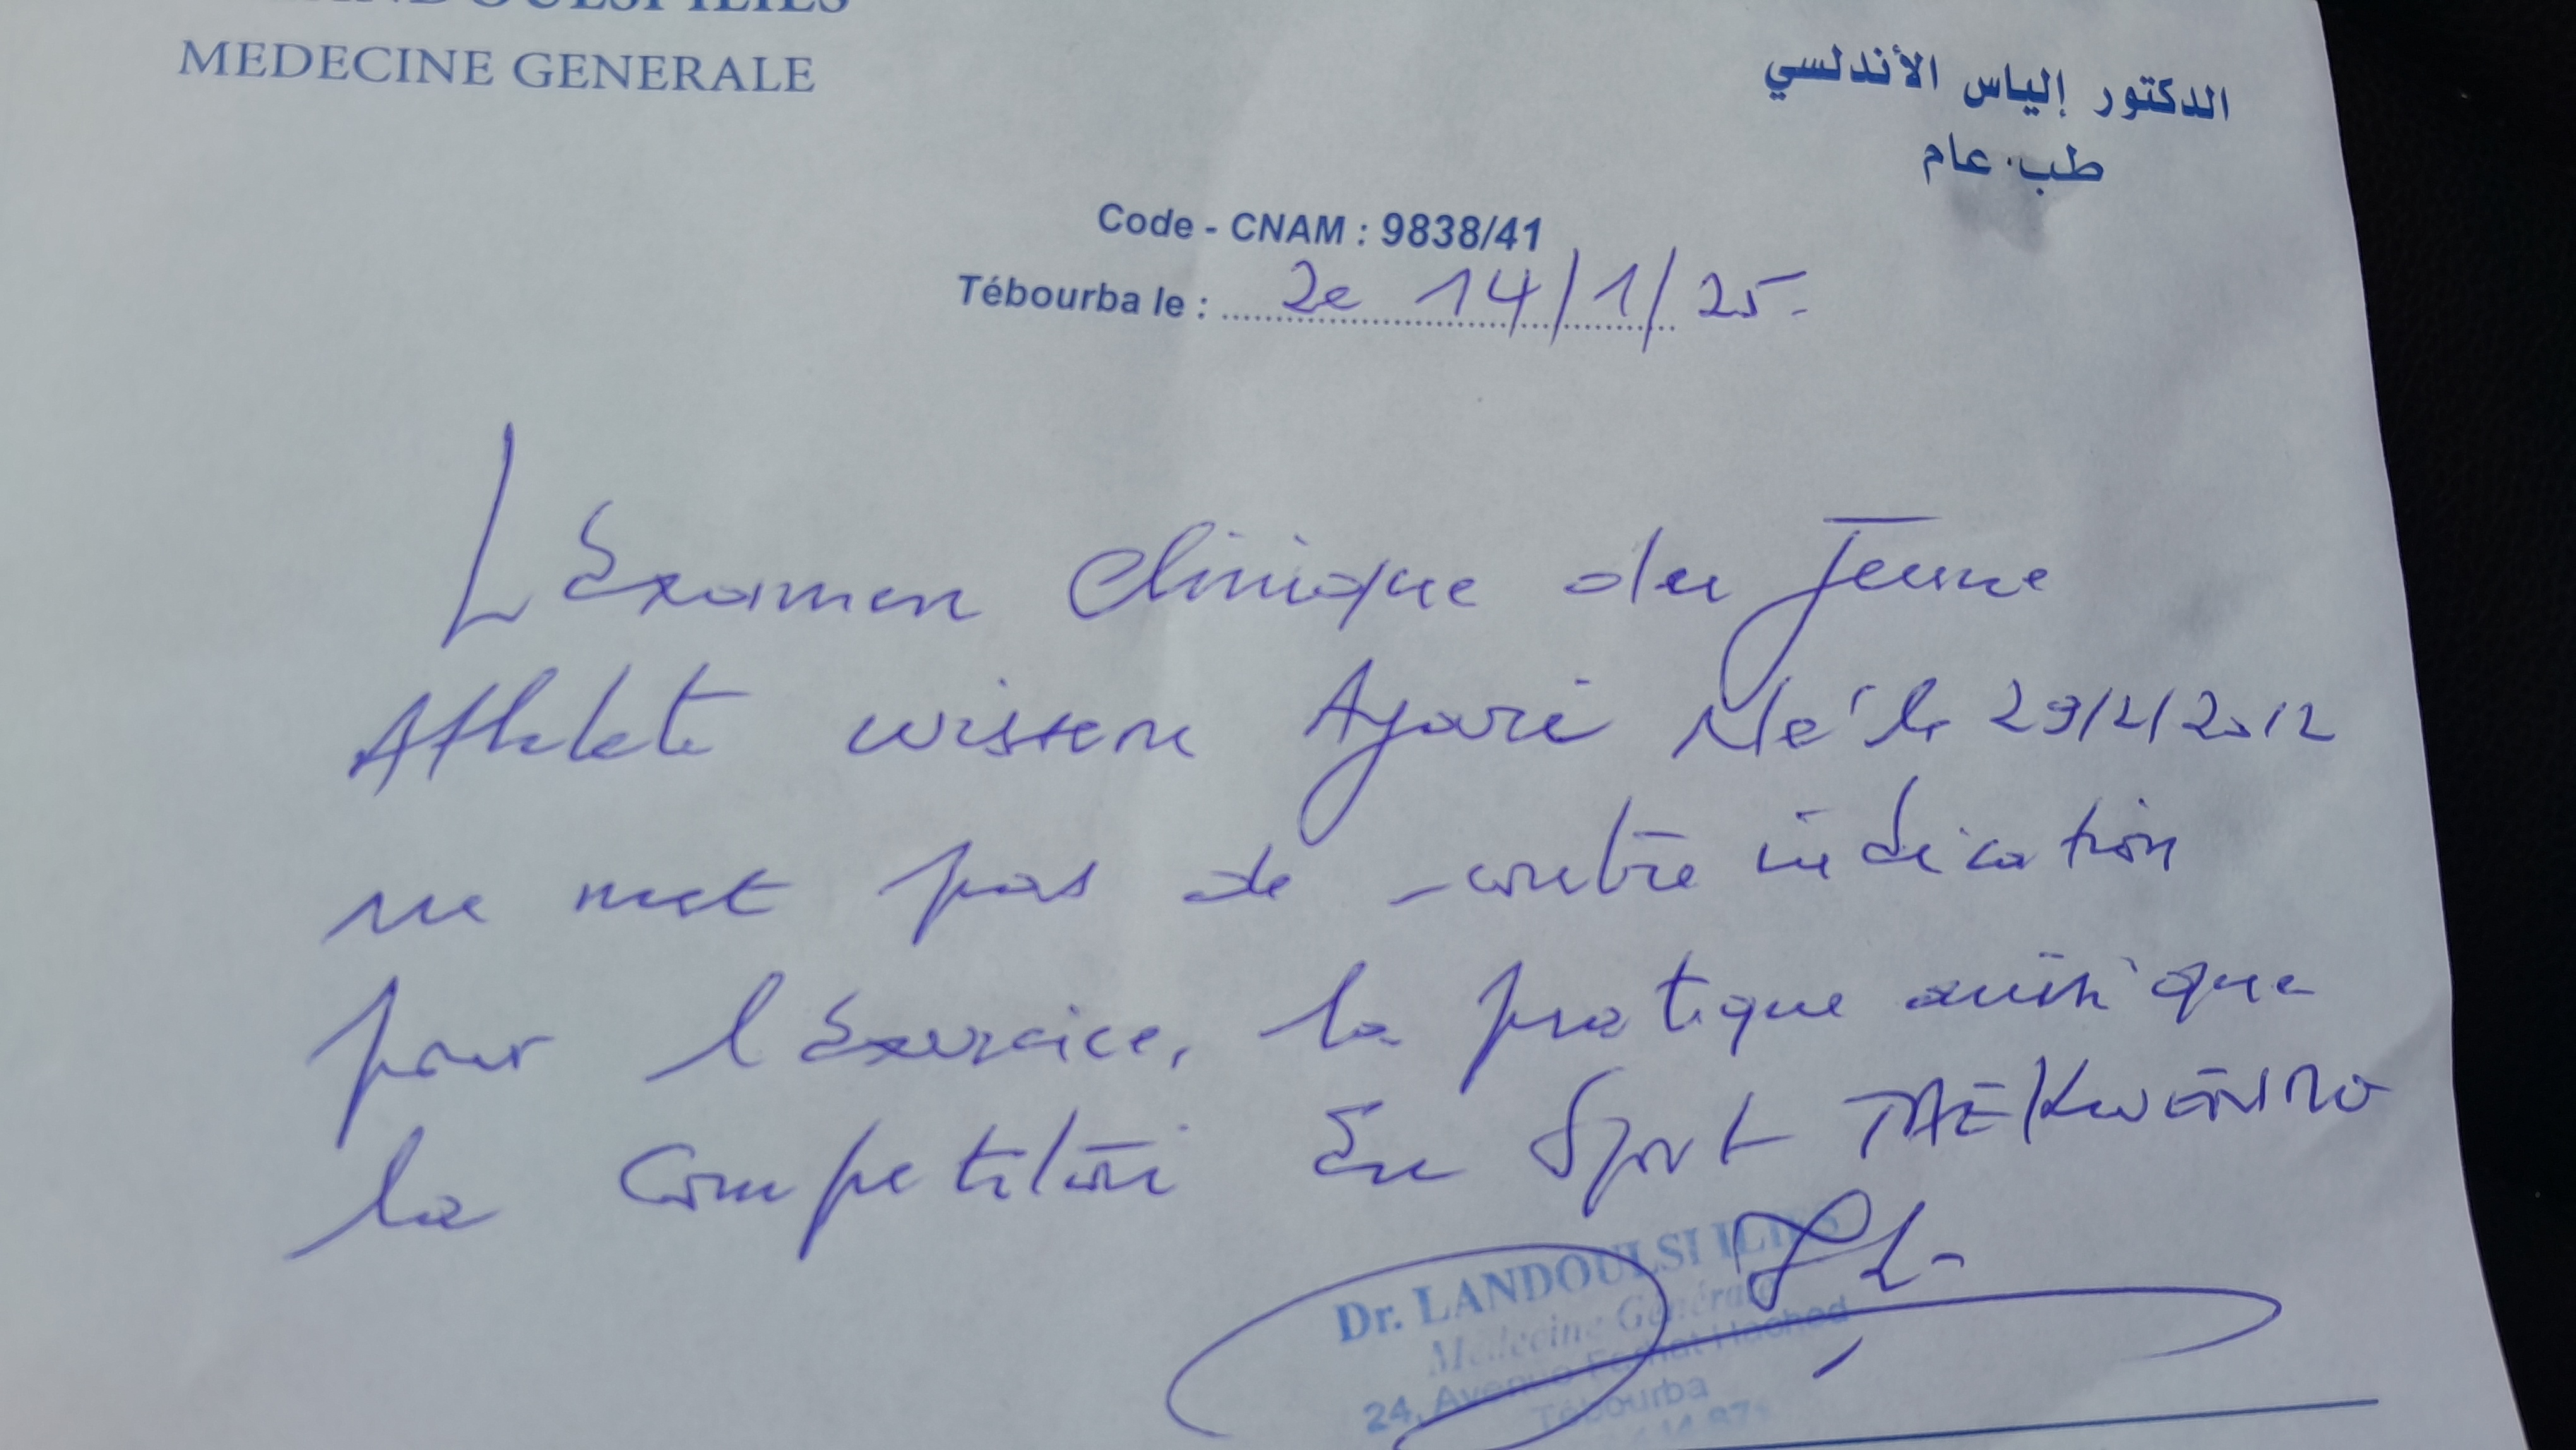 LANDOULSI ILIES
MEDECINE GENERALE
الدكتور إلياس الأندلسي
طب عام
Code - CNAM : 9838/41
Tébourba le : 2e 14/1/25
L'Examen Clinique du Jeune
Athlete wissem Ayari Né le 29/2/2012
ne met pas de contre indication
pour l'Exercice, la pratique ainsi que
la Competition En Sport TAEKWENDO
Dr. LANDOULSI ILIES
Médecine Générale
24, Avenue Farhat Hached
Tébourba